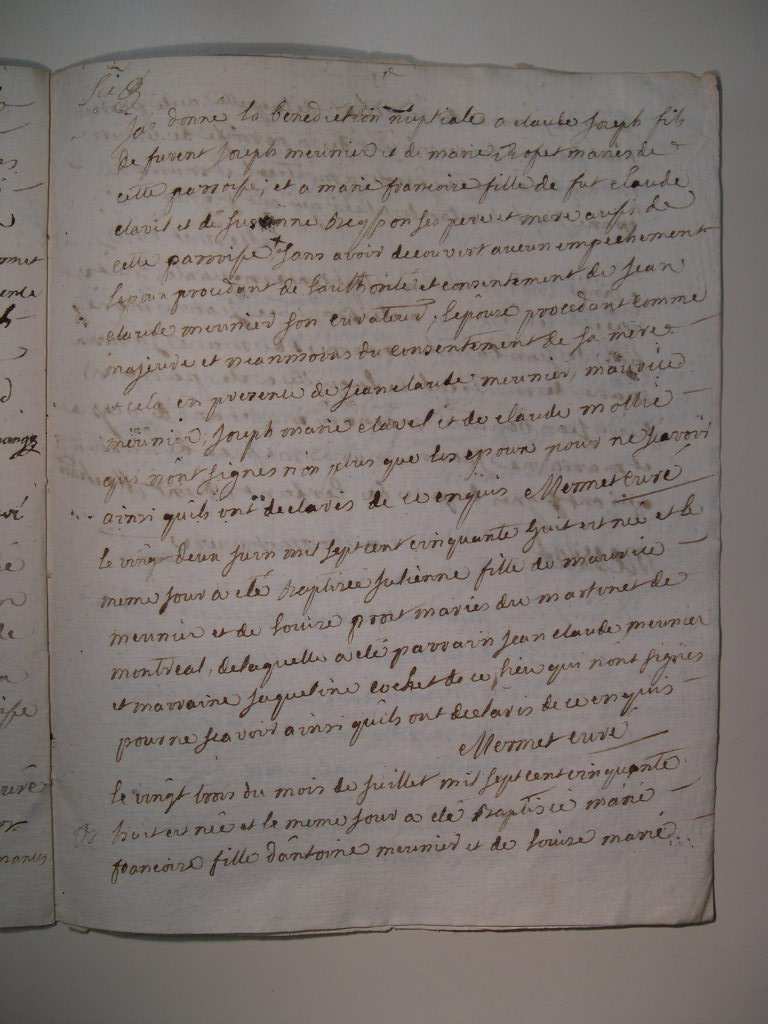 J'ai donné la benediction nuptiale a claude Joseph fils
de furent Joseph meunier et de marie mariés de
cette parroisse, et a marie francoise fille de fut claude
clavel et de susanne ses pere et mere aussi de
cette parroisse sans avoir decouvert aucun empechement
l'epoux procedant de l'authorité et consentement de Jean
claude meunier son curateur, l'epouse procedant comme
majeure et neanmoins du consentement de sa mere
et cela en presence de Jean claude meunier, maurice
meunier, Joseph marie clavel et de claude mollie
qui n'ont signes non plus que les epoux pour ne scavoir
ainsi quils ont declares de ce enquis Mermet curé
le vingt deux juin mil sept cent cinquante huit est née et le
meme jour a eté baptisée Julienne fille de maurice
meunier et de louise prost mariés du martinet de
montreal, de laquelle a eté parrain Jean claude meunier
et marraine Jaqueline cochet de ce lieu qui n'ont signes
pour ne scavoir ainsi qu'ils ont declarés de ce enquis
Mermet curé
le vingt trois du mois de Juillet mil sept cent cinquante
huit est née et le meme jour a eté baptisée marie
francoise fille d'antoine meunier et de louise marie